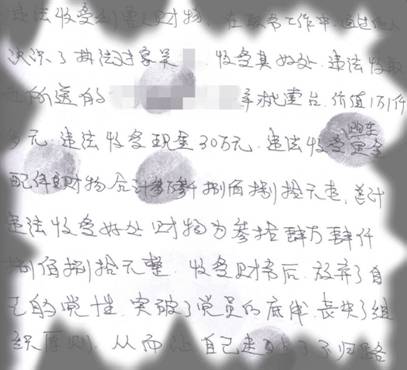 违法收受别人财物,在职务工作中,通过他人
决识了执法对象吴 收受其好处,违法收取
所送的 车就壹台,价值1万1仟
多元,违法收受现金30万元,违法收受
配件财物合计 仟捌佰捌拾元整,总计
违法收受好处财物为叁拾肆万肆仟
捌佰捌拾元整。收受财务后,放弃了自
己的党性,突破了党员的底线,丧失了组
织原则,从而让自己走 了不归路